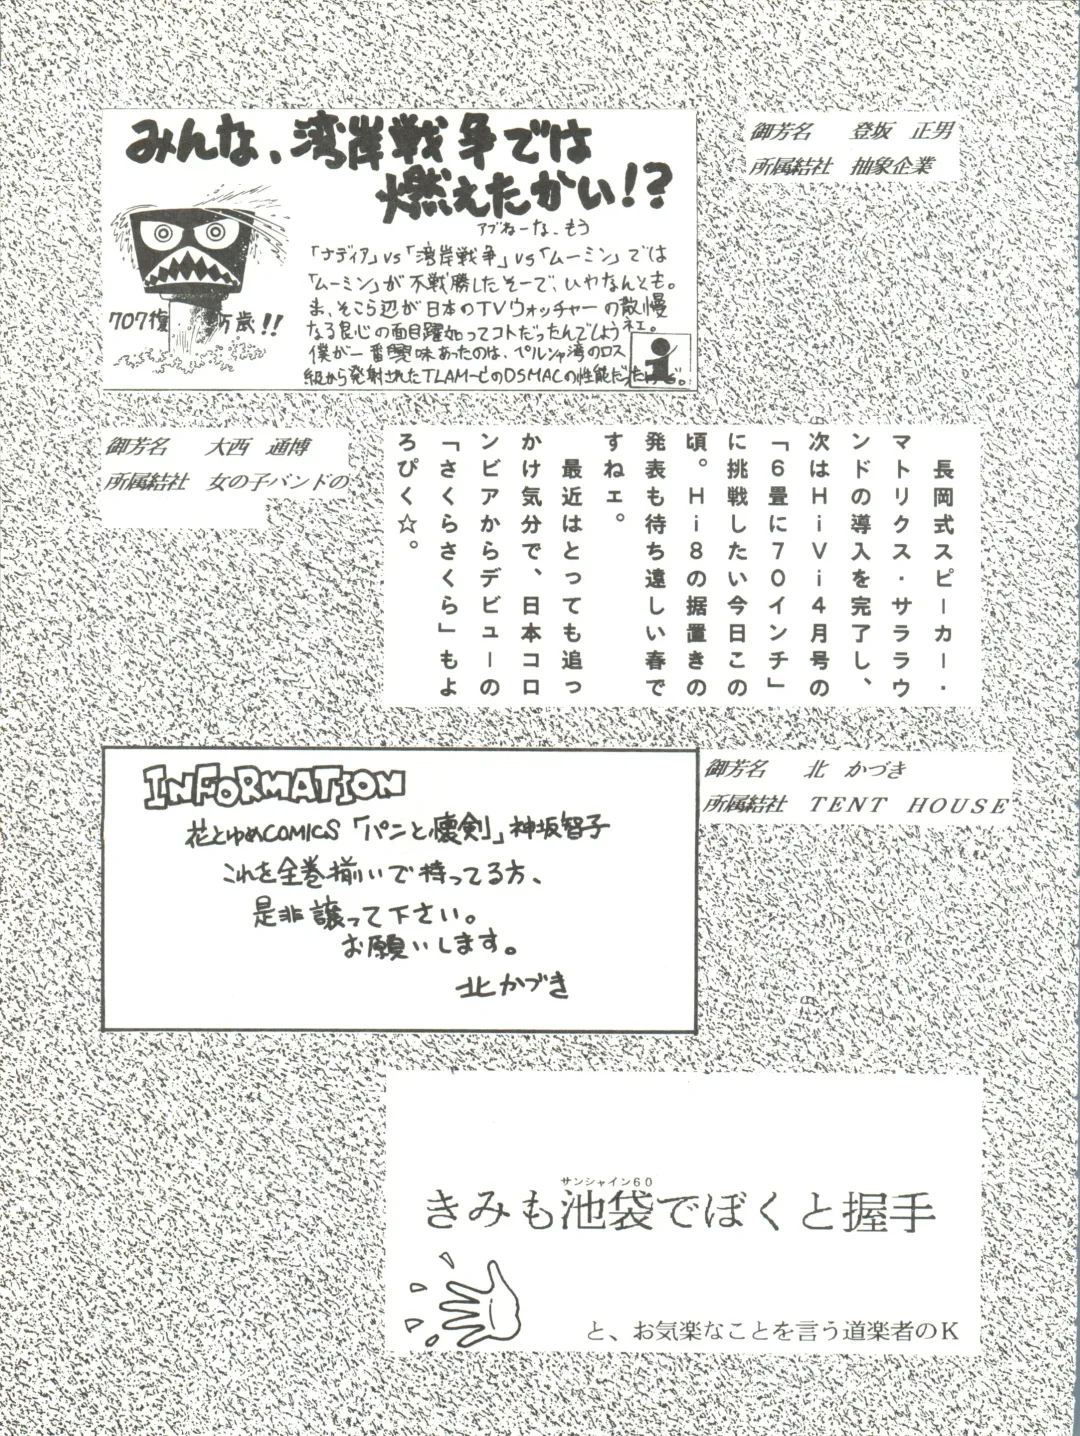 みんな、湾岸戦争では
燃えたかい!?
アブねーな、もう
「ナディア」vs「湾岸戦争」vs「ムーミン」では
「ムーミン」が不戦勝したそーで、いやなんとも。
ま、そこら辺が日本のTVウォッチャーの散慢
なる良心の面目躍如ってコトだったんでしょうネェ。
僕が一番興味あったのは、ペルシャ湾のロス
級から発射されたTLAM-CのDSMACの性能だったけど。
707復 万歳!!
御芳名 登坂 正男
所属結社 抽象企業
御芳名 大西 通博
所属結社 女の子バンドの
長岡式スピーカー・
マトリクス・サララウ
ンドの導入を完了し、
次はHiVi4月号の
「6畳に70インチ」
に挑戦したい今日この
頃。Hi8の据置きの
発表も待ち遠しい春で
すねェ。
最近はとっても追っ
かけ気分で、日本コロ
ンビアからデビューの
「さくらさくら」もよ
ろぴく☆。
御芳名 北 かづき
所属結社 TENT HOUSE
INFORMATION
花とゆめCOMICS「パンと懐剣」神坂智子
これを全巻揃いで持ってる方、
是非譲って下さい。
お願いします。
北かづき
サンシャイン60
きみも池袋でぼくと握手
と、お気楽なことを言う道楽者のK